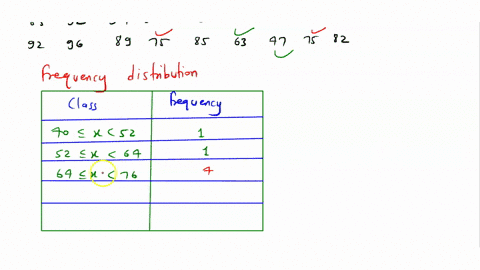 92 96 89 75 85 63 47 75 82
frequency distribution
Class frequency
40 ≤ x < 52 1
52 ≤ x < 64 1
64 ≤ x < 76 4